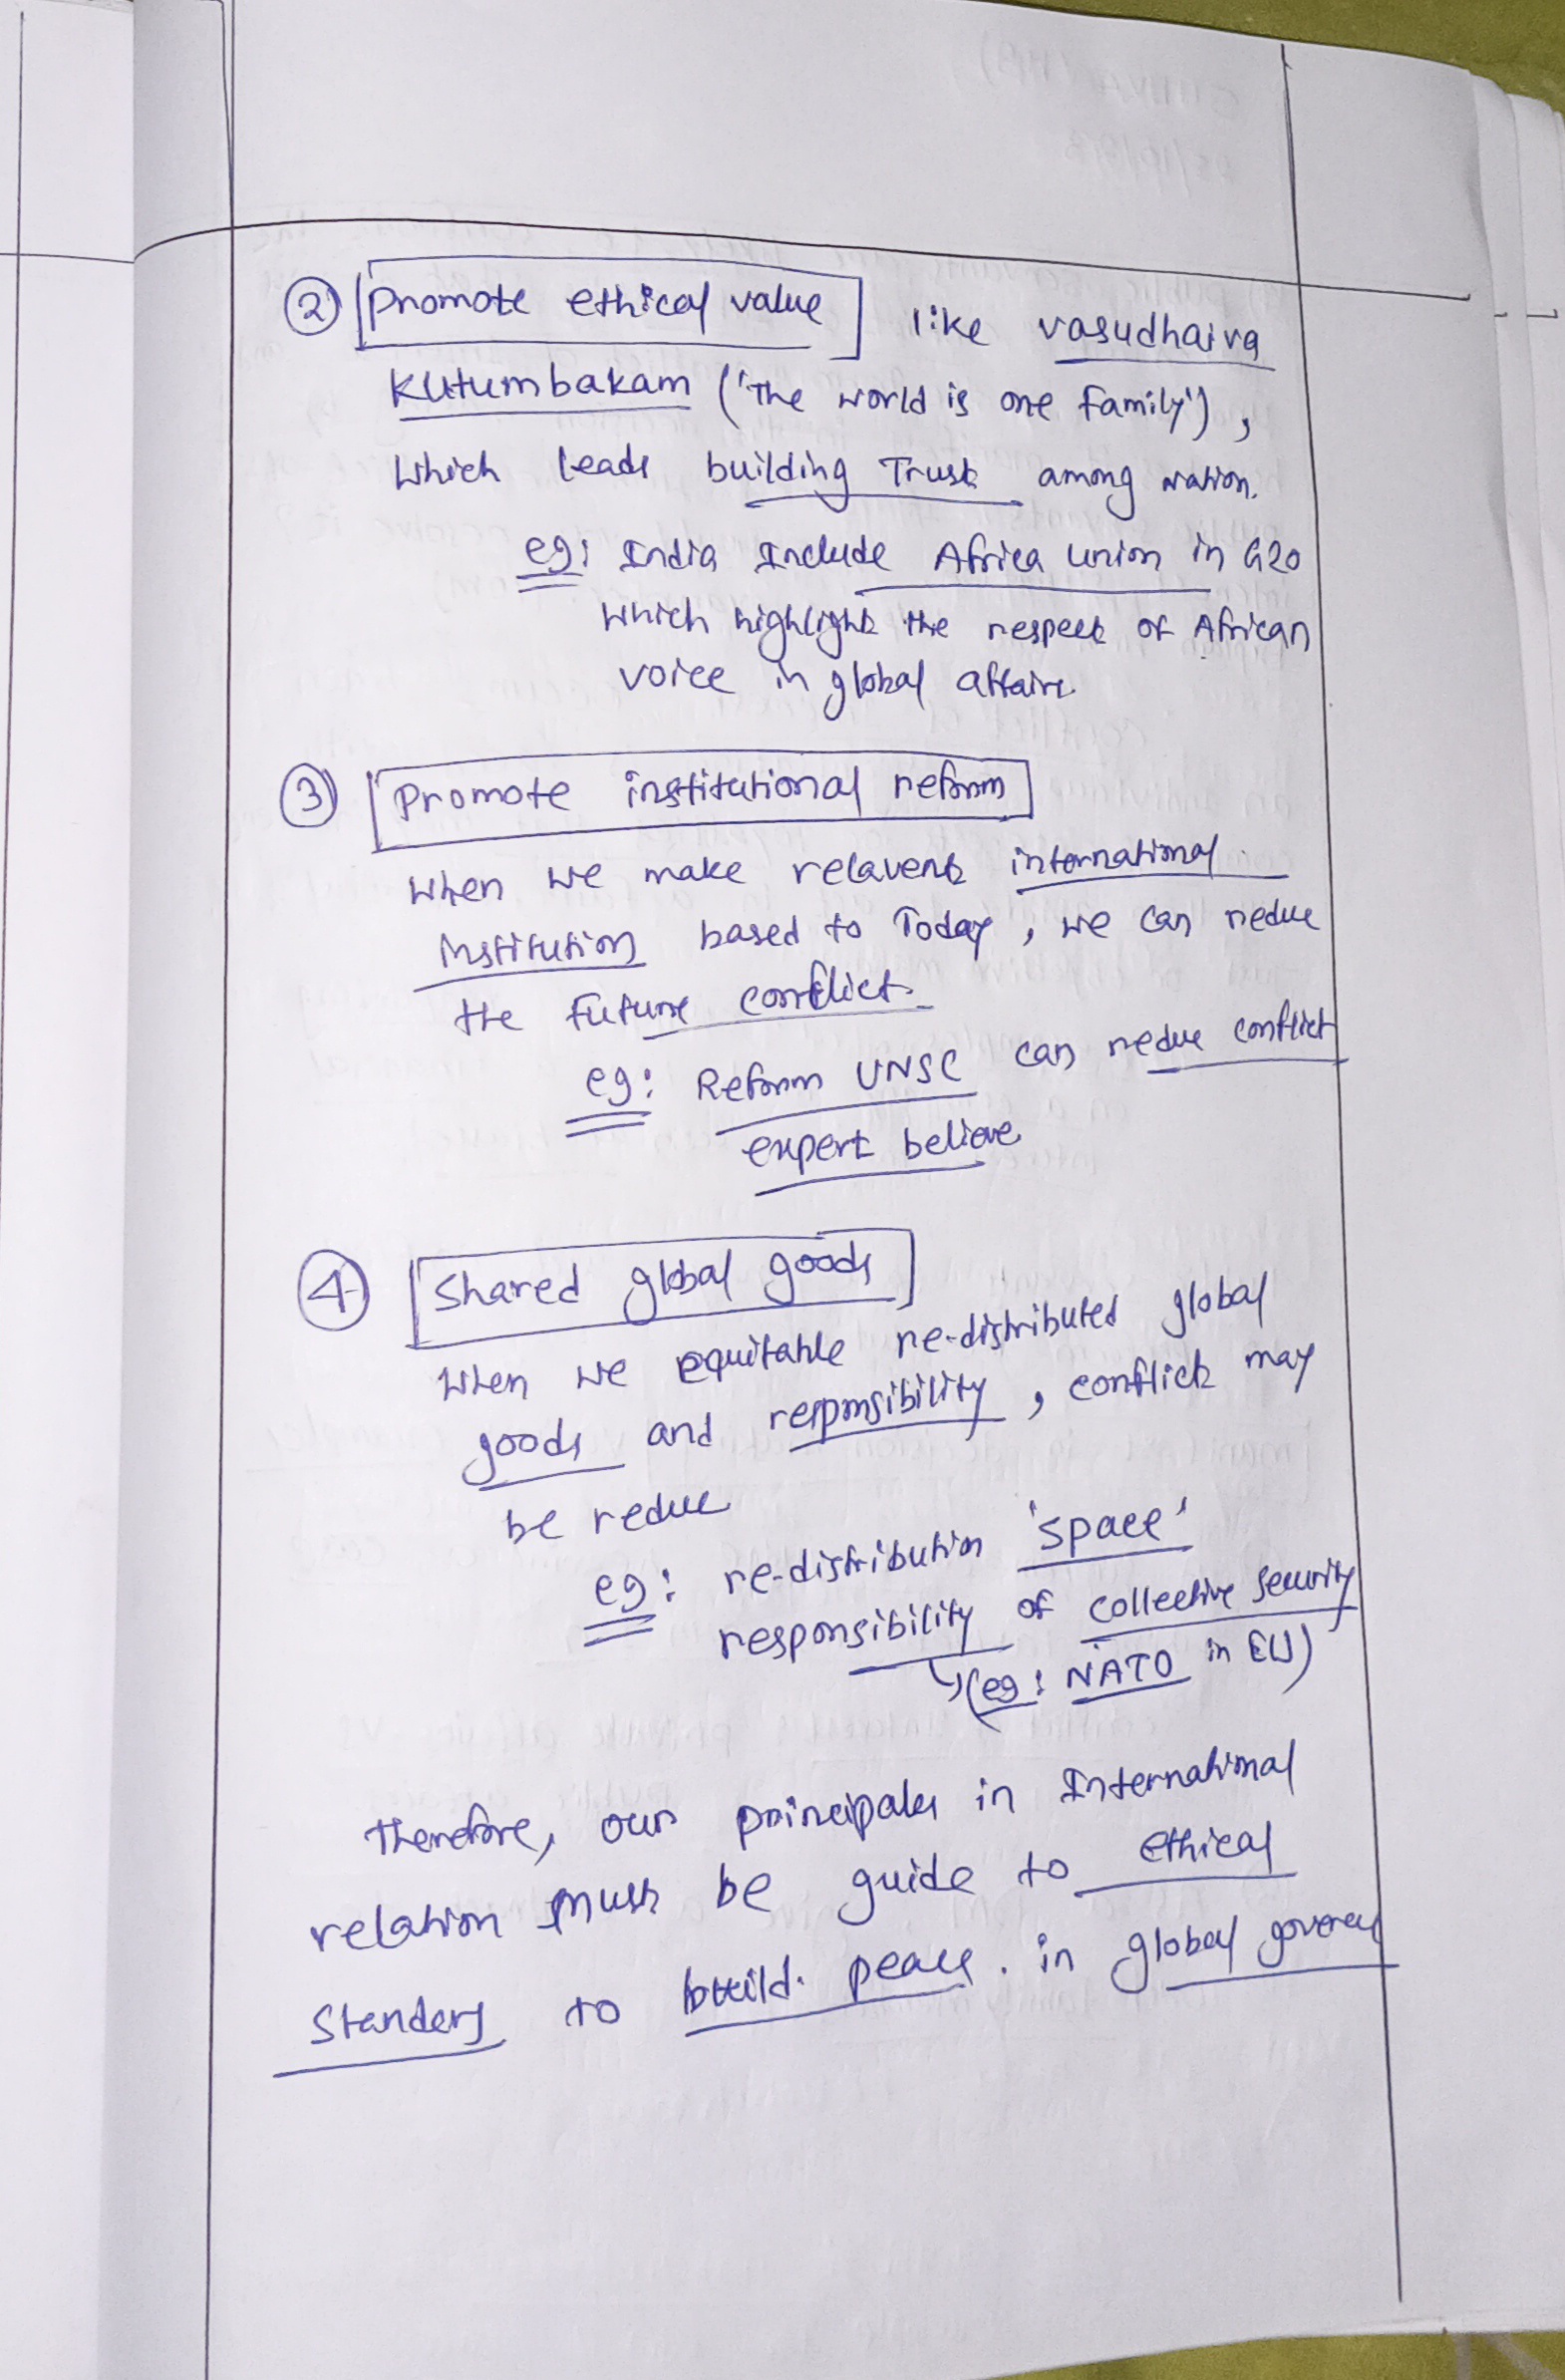 ② Promote ethical value like vasudhaiva
Kutumbakam ('The world is one family'),
which leads building Trust among nation.
eg: India Include Africa union in G20
which highlight the respect of African
voice in global affairs
③ Promote institutional reform
when we make relavent international
institution based to Today, we can redue
the future conflict.
eg: Reform UNSC can redue conflict
expert believe
④ Shared global goods
when we equitable re-distributed global
goods and responsibility, conflict may
be redue
eg: re-distribution 'space'
responsibility of collective security
↳(eg: NATO in EU)
Therefore, our principales in International
relation must be guide to ethical
Standers to build peace. in global